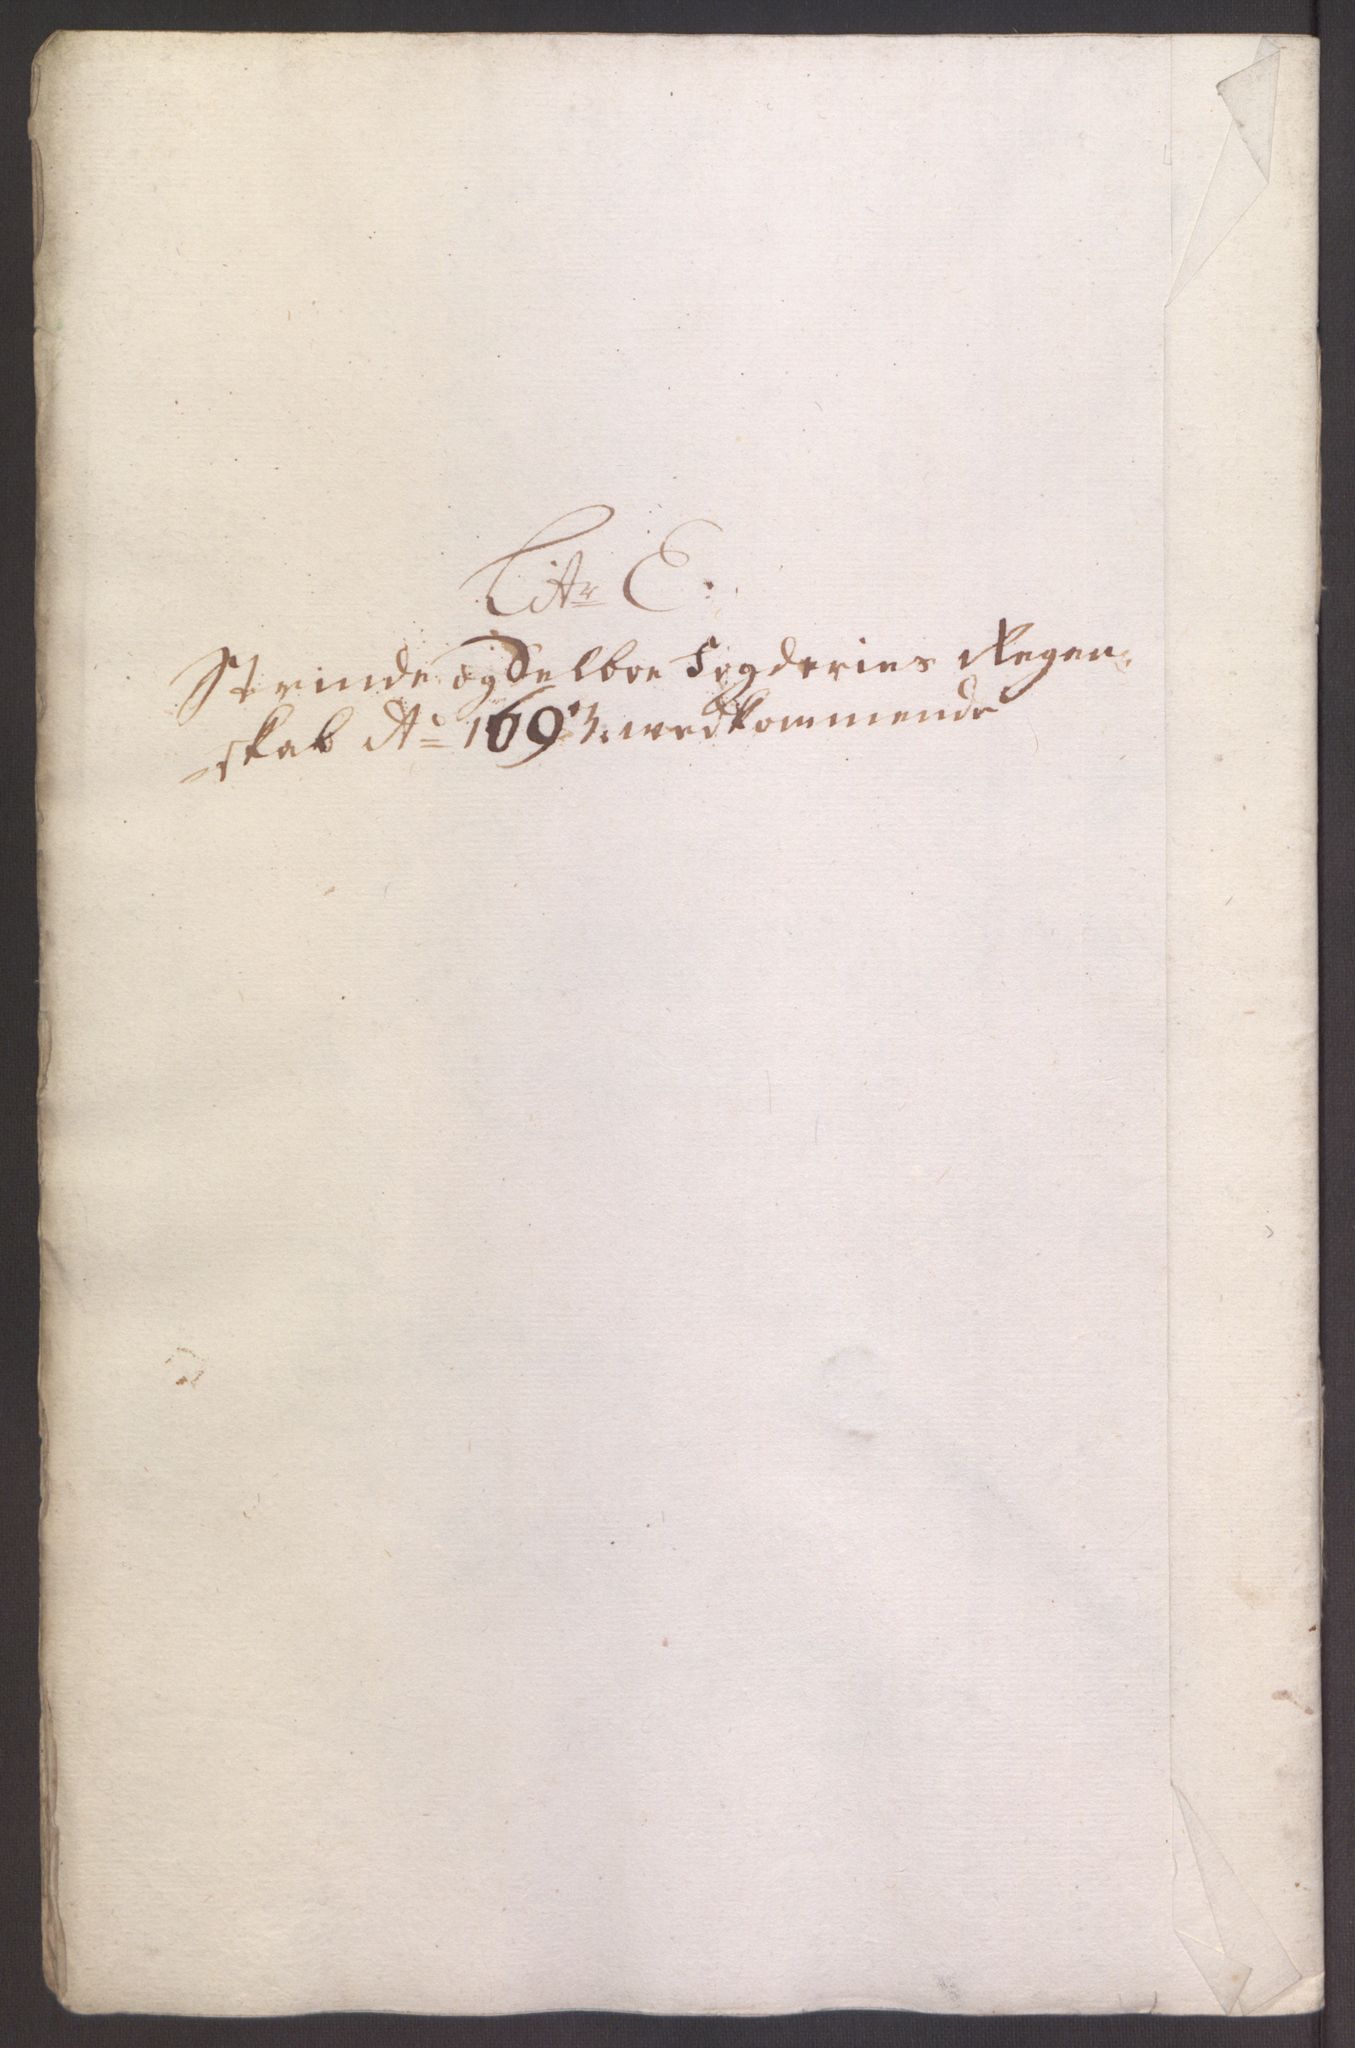 Litr E:
Strinde og Selboe Fogderies Regen-
skab Ao 1693. vedkommende